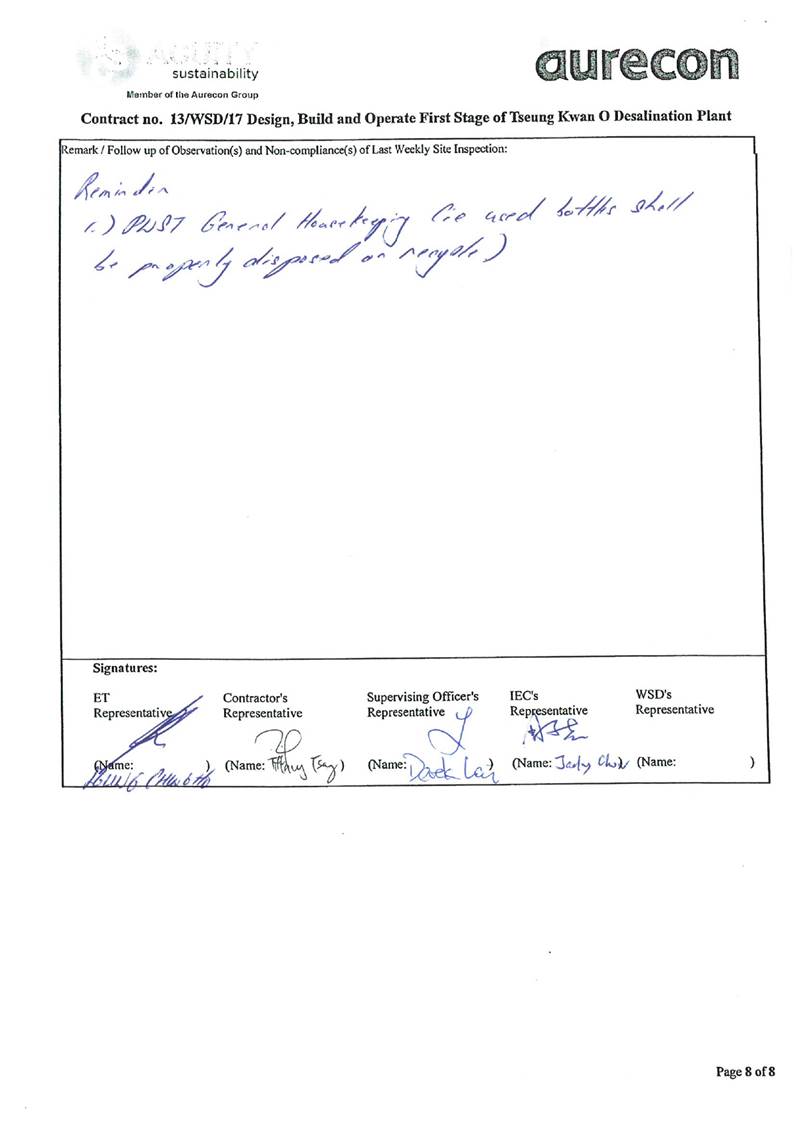 ACUITY
sustainability
Member of the Aurecon Group
aurecon
Contract no. 13/WSD/17 Design, Build and Operate First Stage of Tseung Kwan O Desalination Plant
Remark / Follow up of Observation(s) and Non-compliance(s) of Last Weekly Site Inspection:
Reminder
1.) PWST General Housekeeping (ie used bottles shall
be properly disposed or recycle)
Signatures:
ET Representative
Contractor's Representative
Supervising Officer's Representative
IEC's Representative
WSD's Representative
(Name: )
(Name: Tiffany Tsang)
(Name: Derek Lai)
(Name: Choi
(Name: )
Page 8 of 8